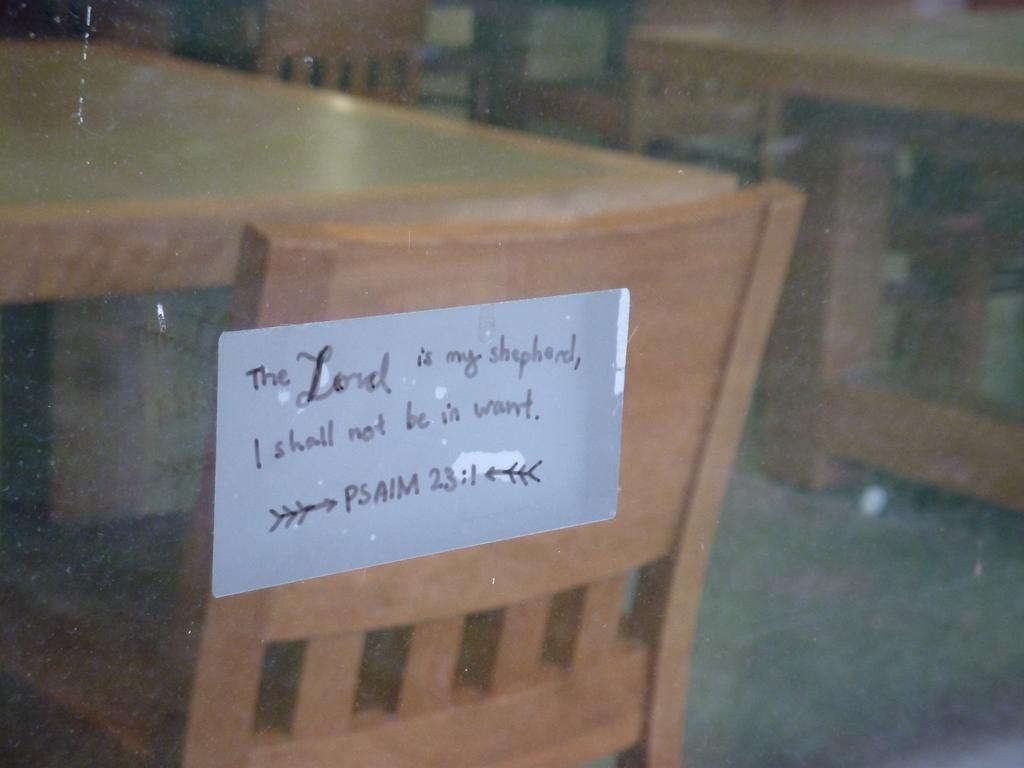 The Lord is my shepherd,
I shall not be in want.
PSAlM 23:1